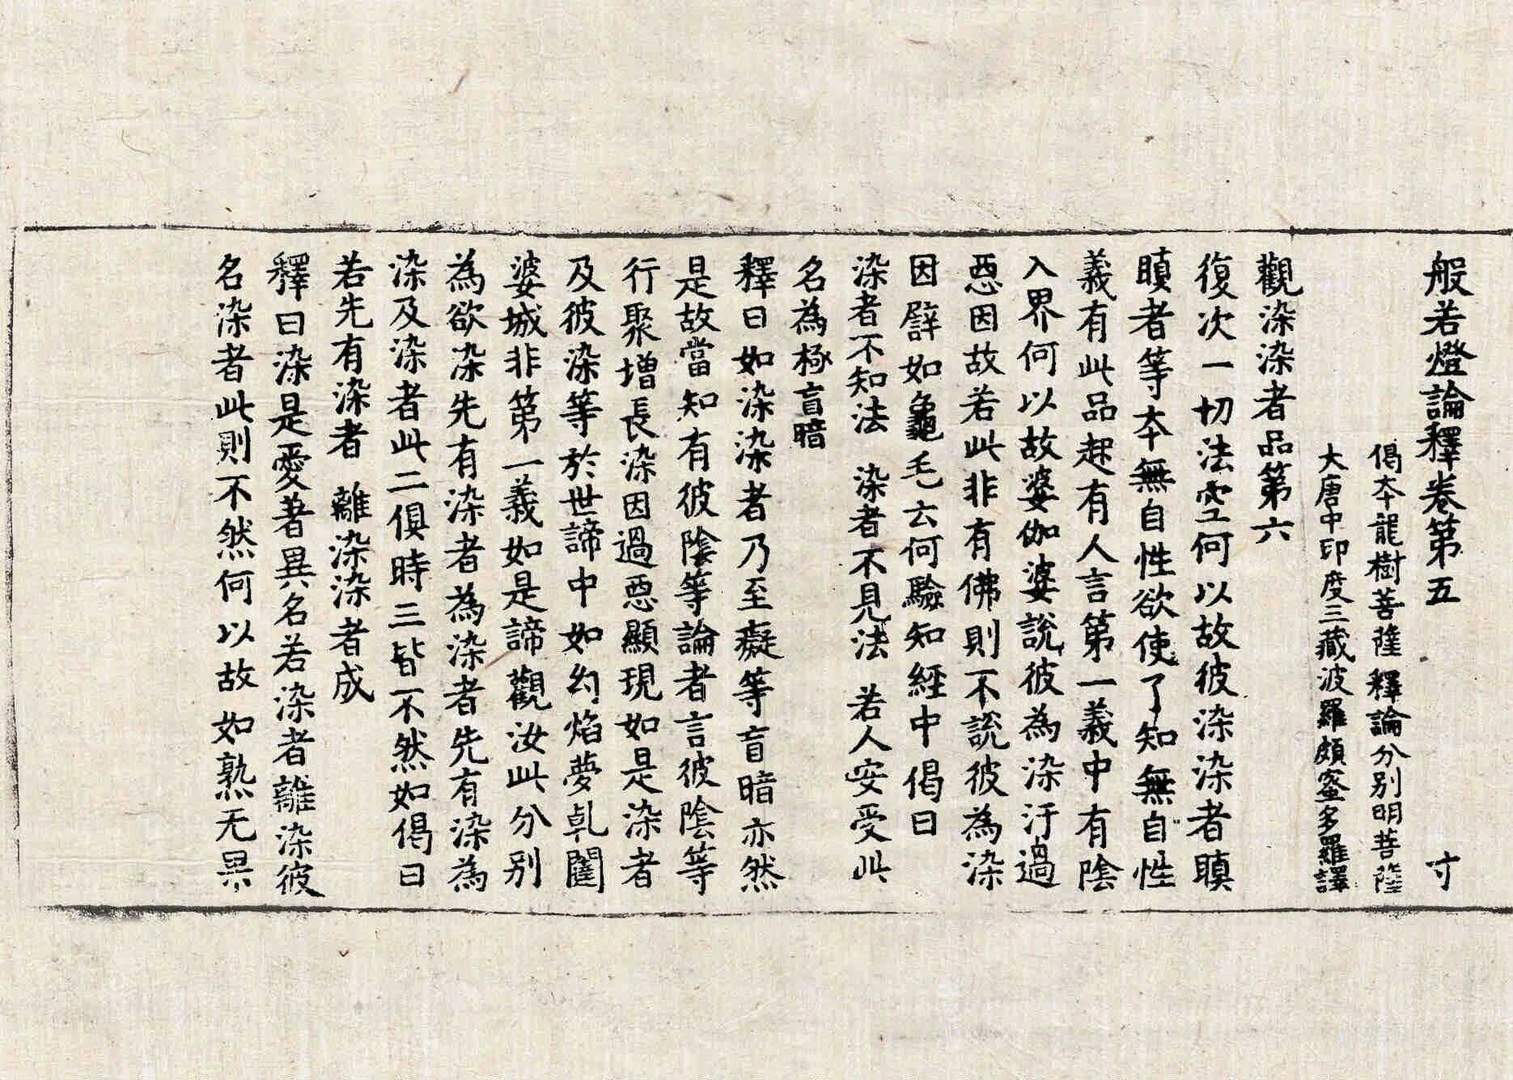 般若燈論釋卷第五 寸
偈夲龍樹菩薩 釋論分别明菩薩
大唐中印度三藏波羅頗蜜多羅譯
觀染染者品第六
復次一切法空何以故彼染染者瞋
瞋者等夲無自性欲使了知無自性
義有此品起有人言第一義中有陰
入界何以故婆伽婆說彼為染汙過
惡因故若此非有佛則不說彼為染
因譬如龜毛云何驗知經中偈曰
染者不知法 染者不見法 若人安受此
名為極盲暗
釋曰如染染者乃至癡等盲暗亦然
是故當知有彼陰等論者言彼陰等
行聚增長染因過惡顯現如是染者
及彼染等於世諦中如幻焰夢乹闥
婆城非第一義如是諦觀汝此分别
為欲染先有染者為染者先有染為
染及染者此二俱時三皆不然如偈曰
若先有染者 離染染者成
釋曰染是愛著異名若染者離染彼
名染者此則不然何以故如熟无果